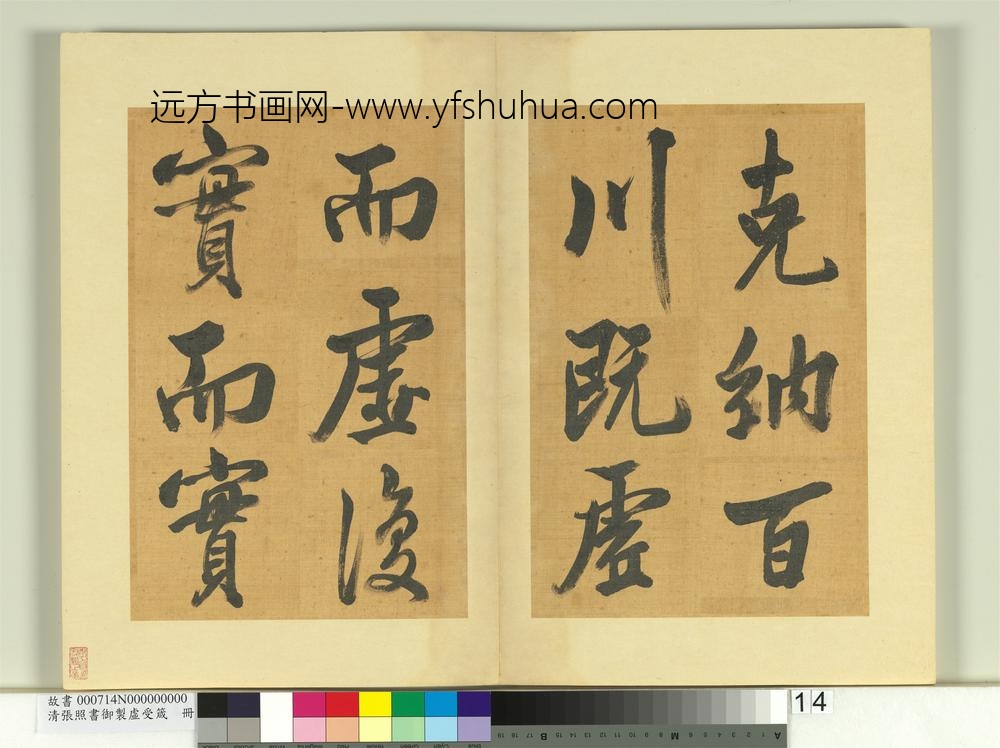 远方书画网-www.yfshuhua.com
克納百
川既虛
而虛復
實而實
故書 000714N000000000
清張照書御製虛受箴 冊
14